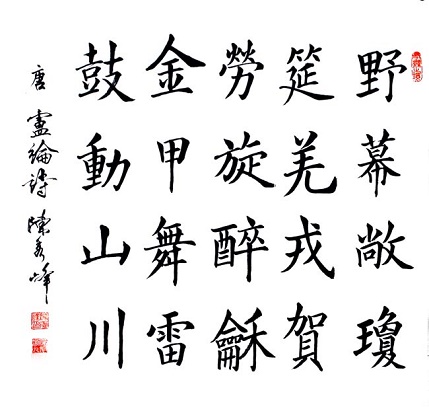 野幕敞瓊
筵羌戎賀
勞旋醉龢
金甲舞雷
鼓動山川
唐 盧綸詩 陳秀峰